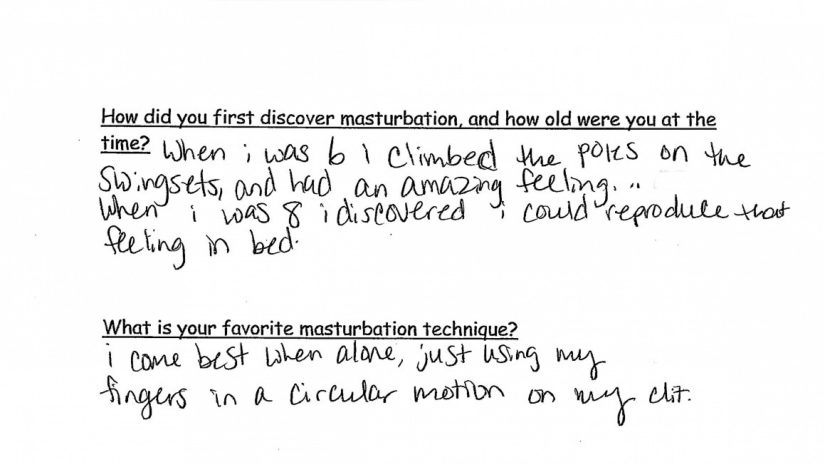 How did you first discover masturbation, and how old were you at the
time? When i was 6 I climbed the poles on the
swingsets, and had an amazing feeling...
When i was 8 i discovered i could reproduce that
feeling in bed.
What is your favorite masturbation technique?
i come best when alone, just using my
fingers in a circular motion on my clit.